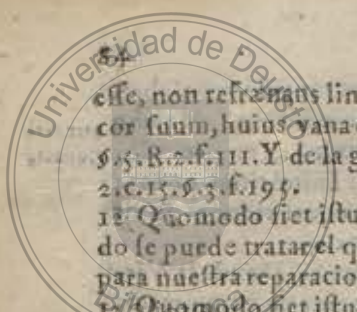 esse, non refrænans lin
cor suum, huius vana
§.5.R.2.f.111. Y de la g
2.c.15.§.3.f.195.
12 Quomodo fiet istu
do se puede tratar el q
para nuestra reparacio
Quomodo fiet istu